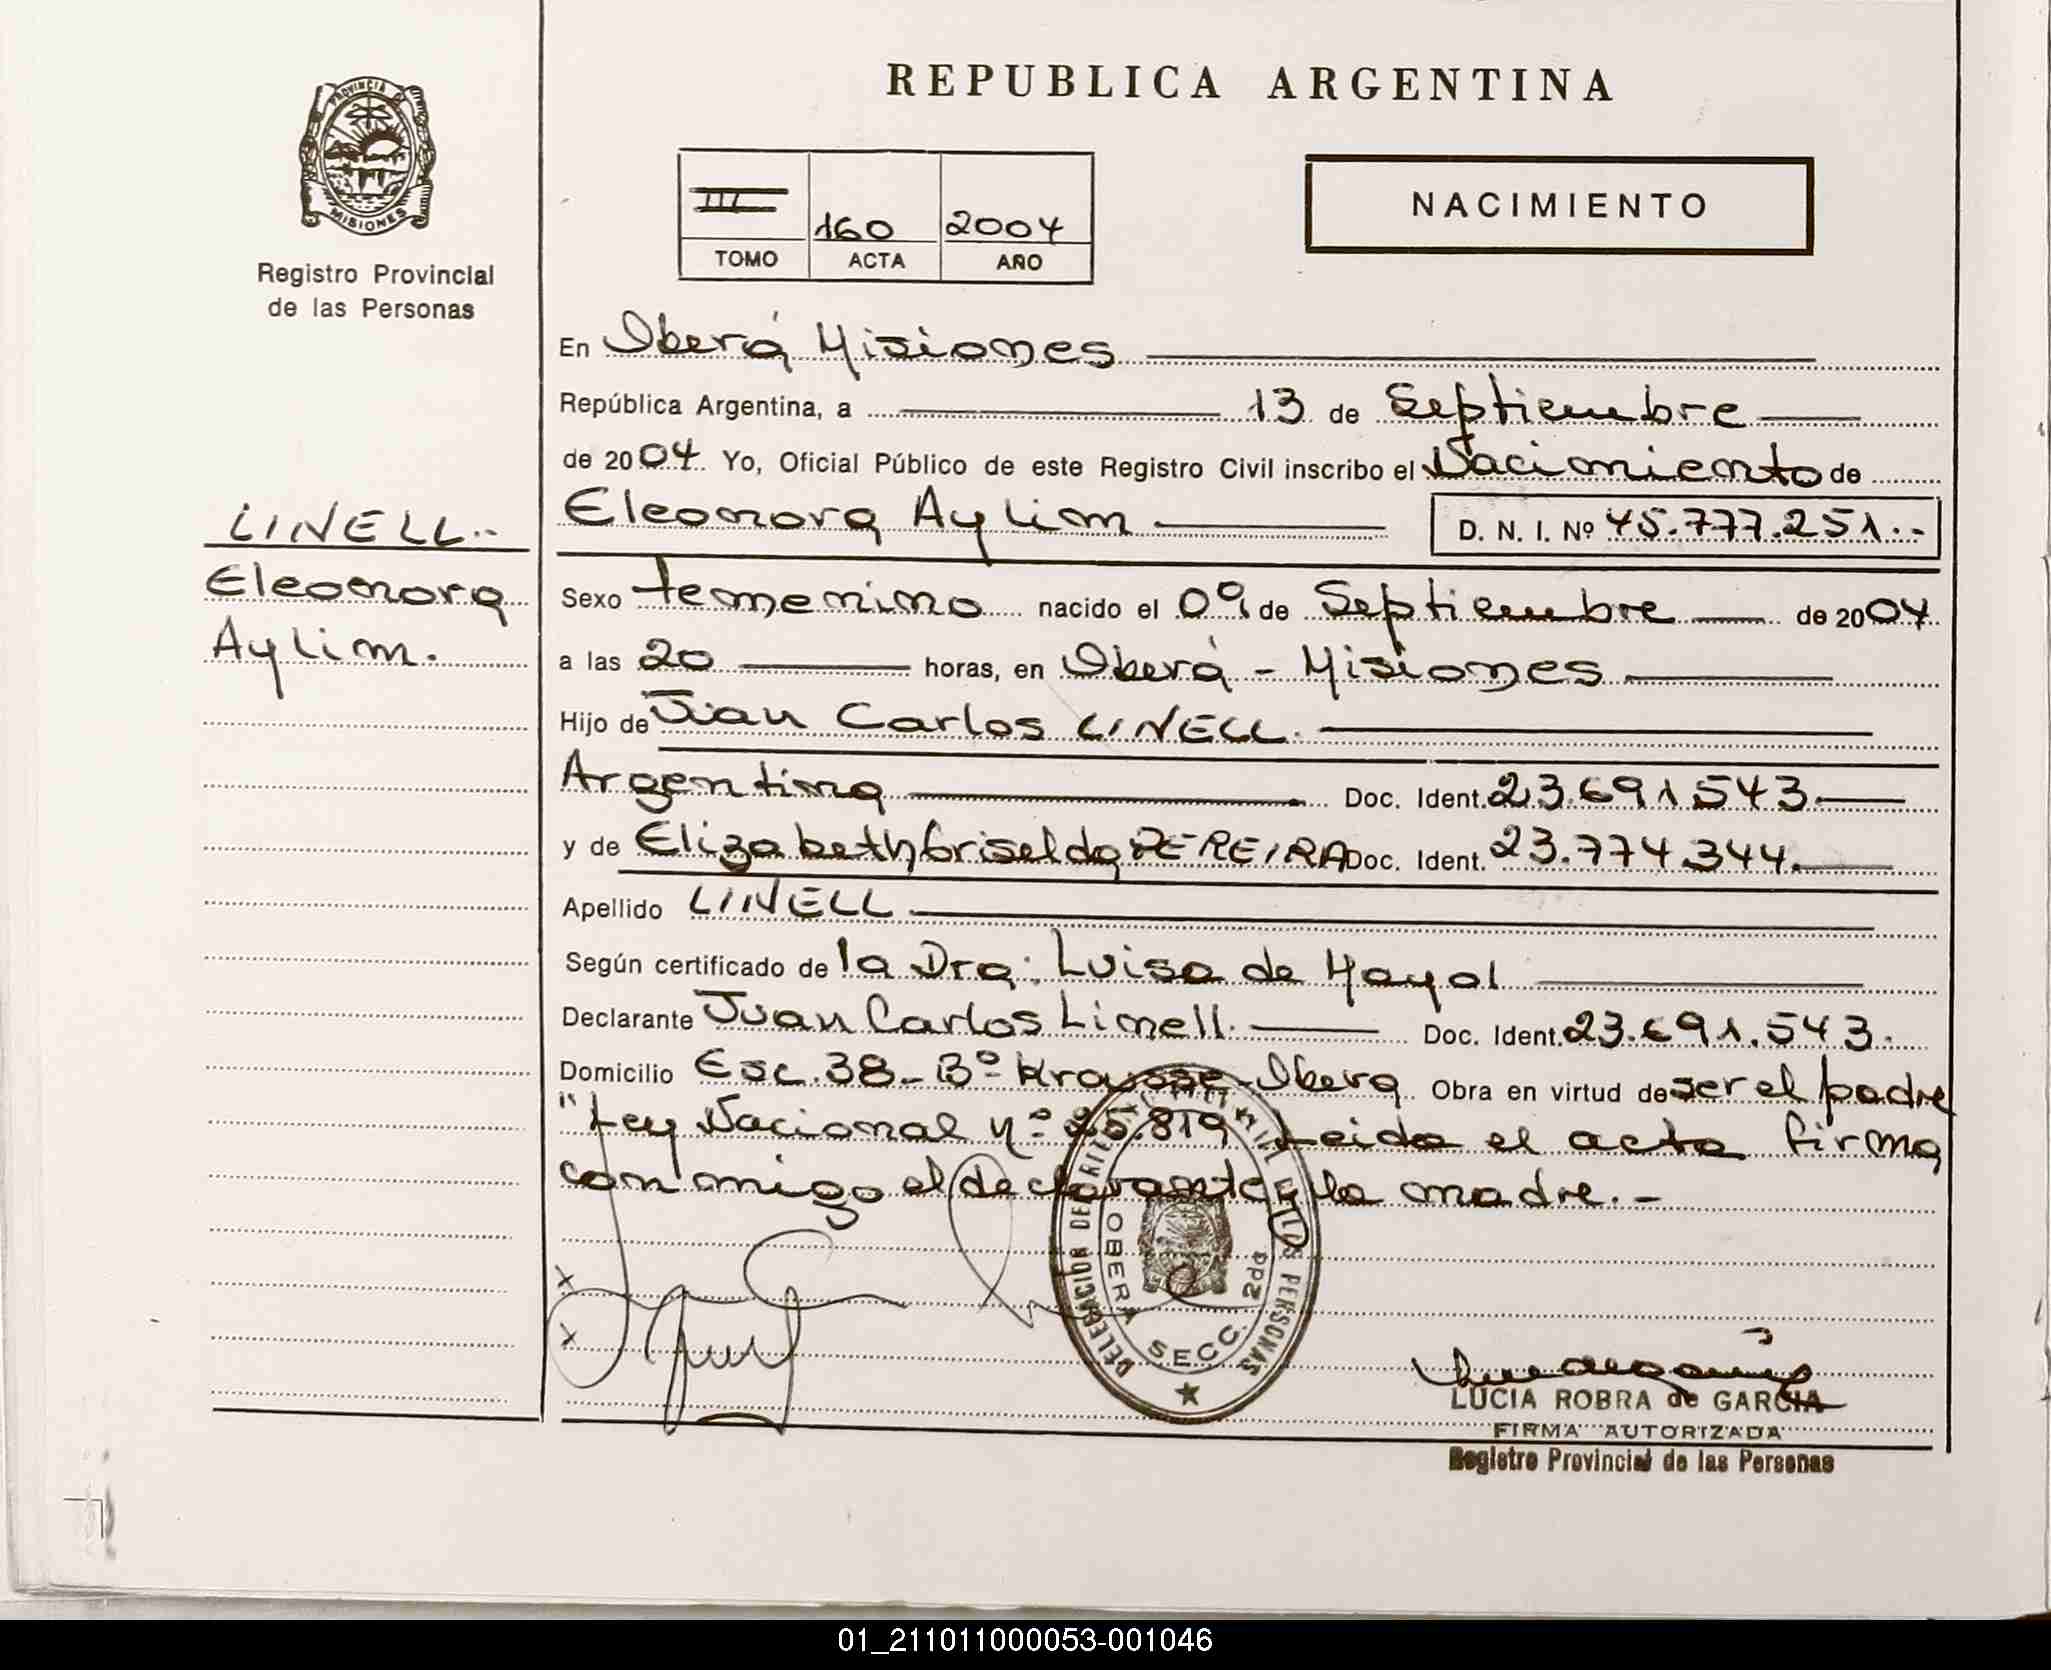 REPUBLICA ARGENTINA
PROVINCIA DE
MISIONES
Registro Provincial
de las Personas
III 160 2004
TOMO ACTA AÑO
NACIMIENTO
En Oberá Misiones
República Argentina, a 13 de Septiembre
de 2004. Yo, Oficial Público de este Registro Civil inscribo el Nacimiento de
Eleonora Aylim D. N. I. Nº 45.777.251.-
LINELL.-
Eleonora
Aylim.
Sexo femenino nacido el 09 de Septiembre de 2004
a las 20 horas, en Oberá - Misiones
Hijo de Juan Carlos LINELL.
Argentina Doc. Ident. 23.691.543.
y de Elizabeth Griselda PEREIRA Doc. Ident. 23.774.344.
Apellido LINELL
Según certificado de la Dra: Luisa de Mayol
Declarante Juan Carlos Linell. Doc. Ident. 23.691.543.
Domicilio Esc. 38 - Bº Krausse - Oberá Obra en virtud de ser el padre
"Ley Nacional Nº 25.819 Leida el acta firma
conmigo el declarante y la madre.-
DELEGACION DE LAS PERSONAS
OBERA SECC. 2da
LUCIA ROBRA de GARCIA
FIRMA AUTORIZADA
Registro Provincial de las Personas
01_211011000053-001046